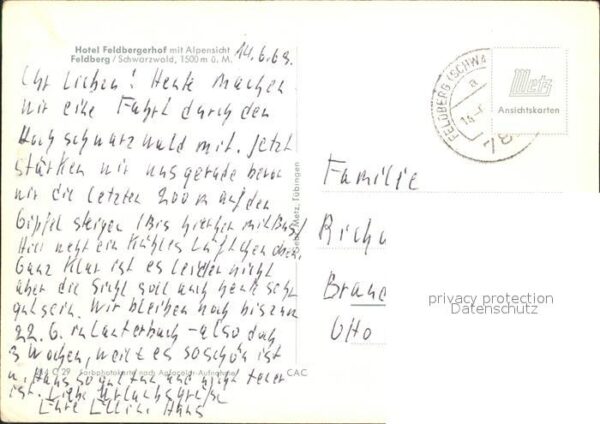 Hotel Feldbergerhof mit Alpensicht
Feldberg / Schwarzwald, 1500 m ü. M.
14.6.69.
Ihr Lieben! Heute machen
wir eine Fahrt durch den
Hochschwarzwald mit. Jetzt
stärken wir uns gerade bevor
wir die letzten 200 m auf den
Gipfel steigen (Bis hierher mit Bus)
Hier weht ein kühles Lüftchen oben.
Ganz klar ist es leider nicht
aber die Sicht soll auch heute sehr
gut sein. Wir bleiben noch bis zum
22.6. in Lauterbach - also doch
3 Wochen, weil es so schön ist
u. Haus so gut und nicht teuer
ist. Liebe Urlaubsgrüße
Eure Lilli u. Hans
C 29 Farbphotokarte nach Agfacolor-Aufnahme
CAC
Gebr. Metz, Tübingen
FELDBERG (SCHWA
a
78
Metz
Ansichtskarten
Familie
Richa
Brand
Otto
privacy protection
Datenschutz